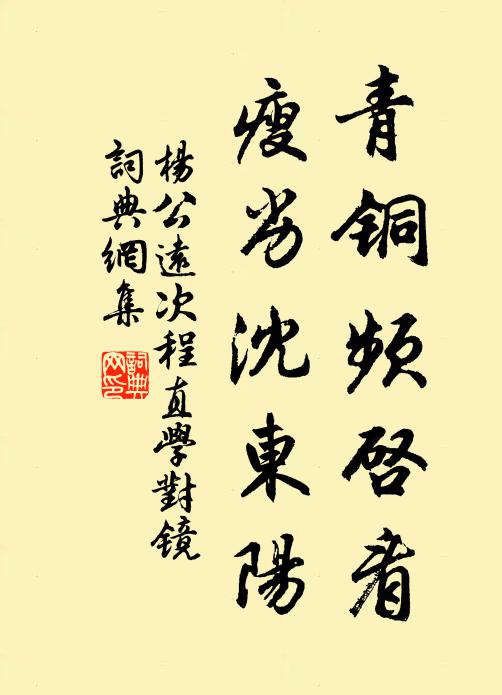 青铜频啓看
瘦劣沈東陽
楊公遠次程直學對镜
詞典網集
詞典网印